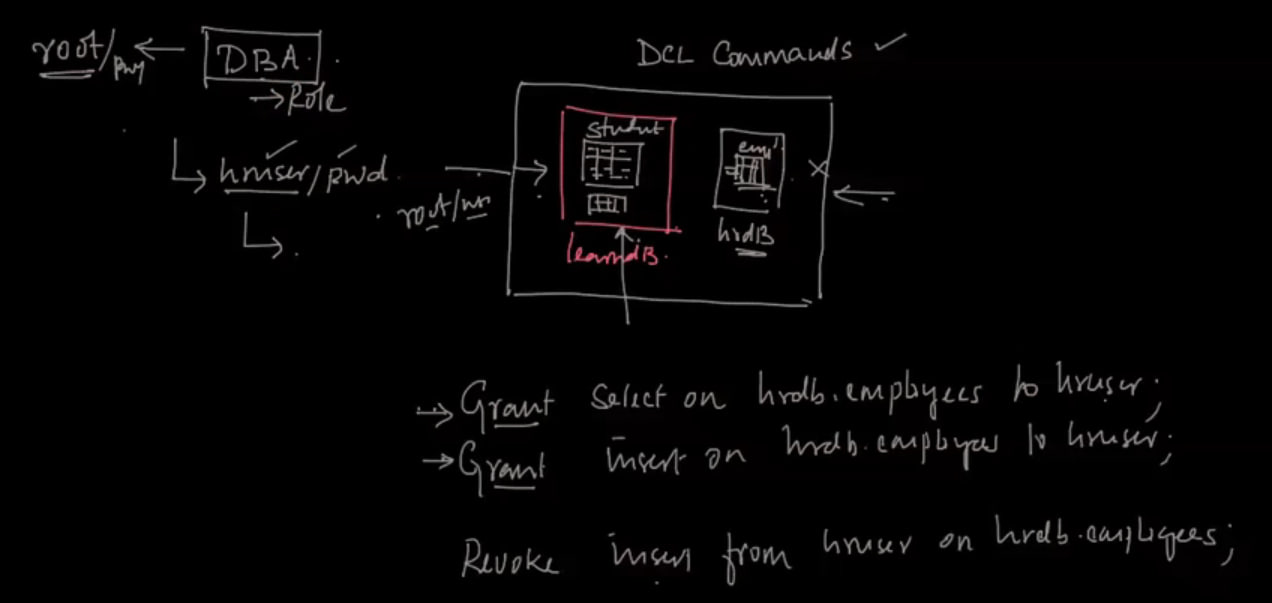 root/pwd ← DBA.
→ Role
↳ hruser/pwd.
DCL Commands ✓
root/
student
emp
learndB.
hrdB
→ Grant Select on hrdb.employees to hruser;
→ Grant insert on hrdb.employees to hruser;
Revoke insert from hruser on hrdb.employees;